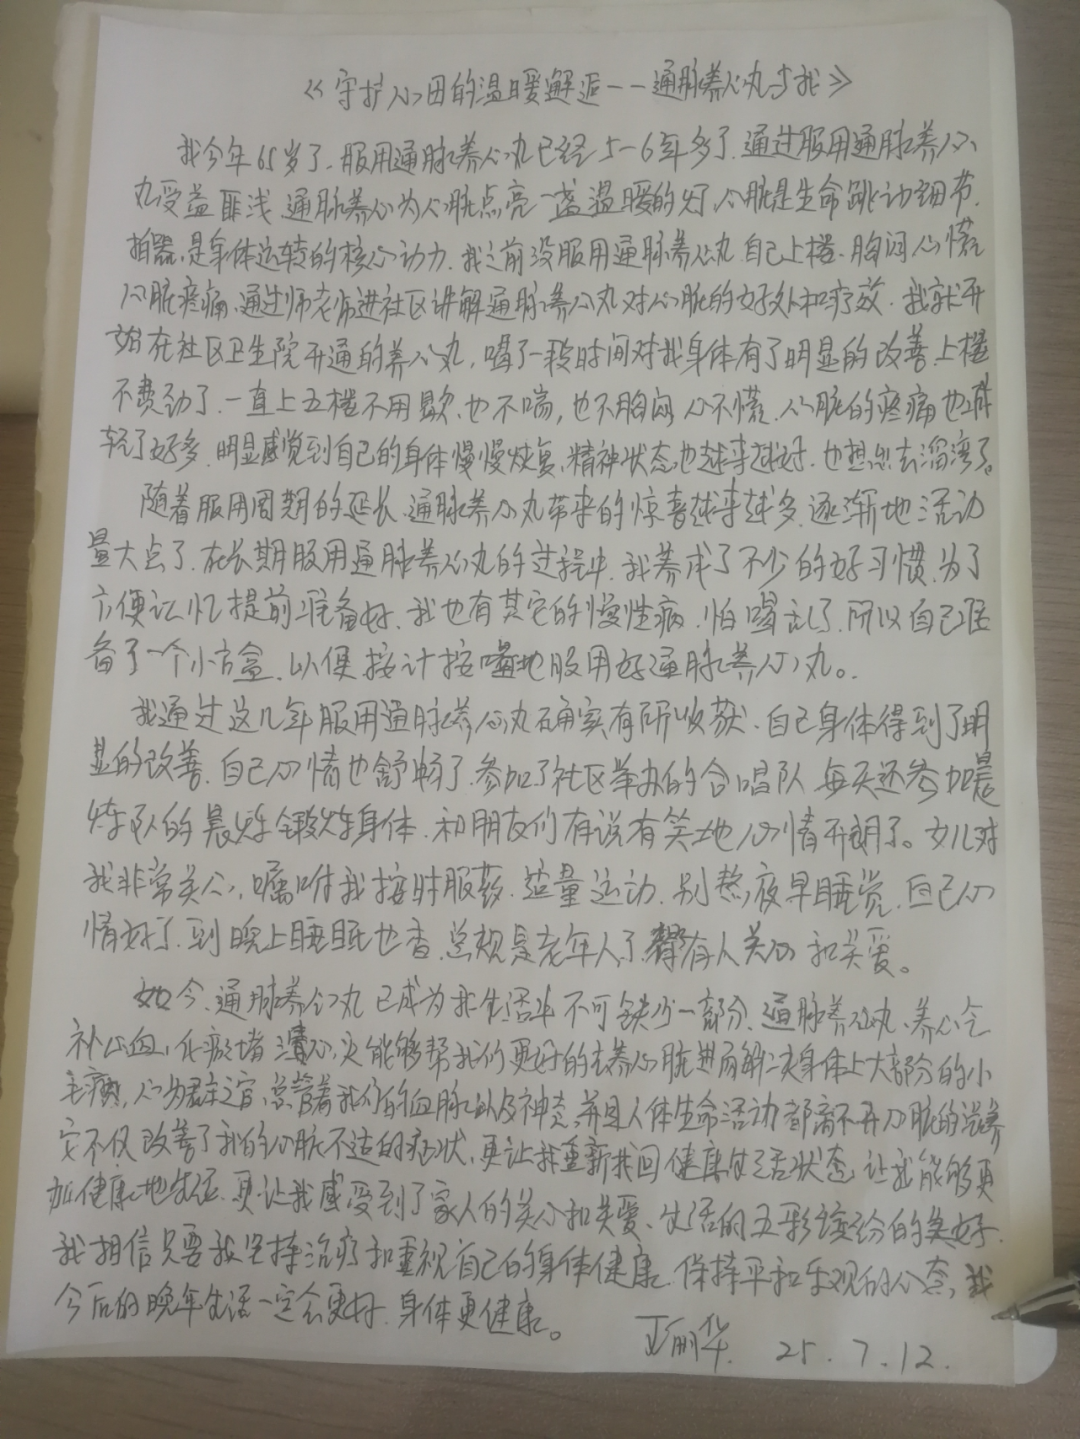 《守护心田的温暖邂逅--通脉养心丸与我》
我今年65岁了、服用通脉养心丸已经5-6年多了.通过服用通脉养心
丸受益匪浅.通脉养心为心脏点亮一盏温暖的灯,心脏是生命跳动的节
拍器,是身体运转的核心动力.我之前没服用通脉养心丸自己上楼、胸闷心慌
心脏疼痛、通过师老师进社区讲解通脉养心丸对心脏的好处和疗效.我就开
始在社区卫生院开通的养心丸,喝了一段时间对我身体有了明显的改善.上楼
不费劲了.一直上五楼不用歇.也不喘,也不胸闷心不慌.心脏的疼痛也减
轻了好多.明显感觉到自己的身体慢慢恢复、精神状态也越来越好.也想出去溜湾了。
随着服用周期的延长、通脉养心丸带来的惊喜越来越多.逐渐地活动
量大点了.在长期服用通脉养心丸的过程中.我养成了不少的好习惯.为了
方便记忆提前准备好.我也有其它的慢性病.怕喝乱了.所以自己准
备了一个小方盒.以便按计按嘱地服用好通脉养心丸。
我通过这几年服用通脉养心丸确实有所收获、自己身体得到了明
显的改善.自己心情也舒畅了.参加了社区举办的合唱队.每天还参加晨
炼队的晨炼锻炼身体.和朋友们有说有笑地心情开朗了。女儿对
我非常关心,嘱咐我按时服药.适量运动.别熬夜早睡觉.自己心
情好了.到晚上睡眠也香.总规是老年人了.有人关心和关爱。
如今、通脉养心丸已成为我生活中不可缺少一部分.通脉养心丸、养心气
补心血,化瘀堵清心火能够帮我们更好的去养心脏进而解决身体上大部分的小
毛病,心为君主之官.总管着我们的血脉以及神志.并且人体生命活动都离不开心脏的滋养
它不仅改善了我的心脏不适的症状,更让我重新找回健康生活状态.让我能够更
加健康地生活.更让我感受到了家人的关心和关爱、生活的五彩缤纷的美好.
我相信只要我坚持治疗和重视自己的身体健康.保持平和乐观的心态,我
今后的晚年生活一定会更好.身体更健康。
丽华. 25.7.12.